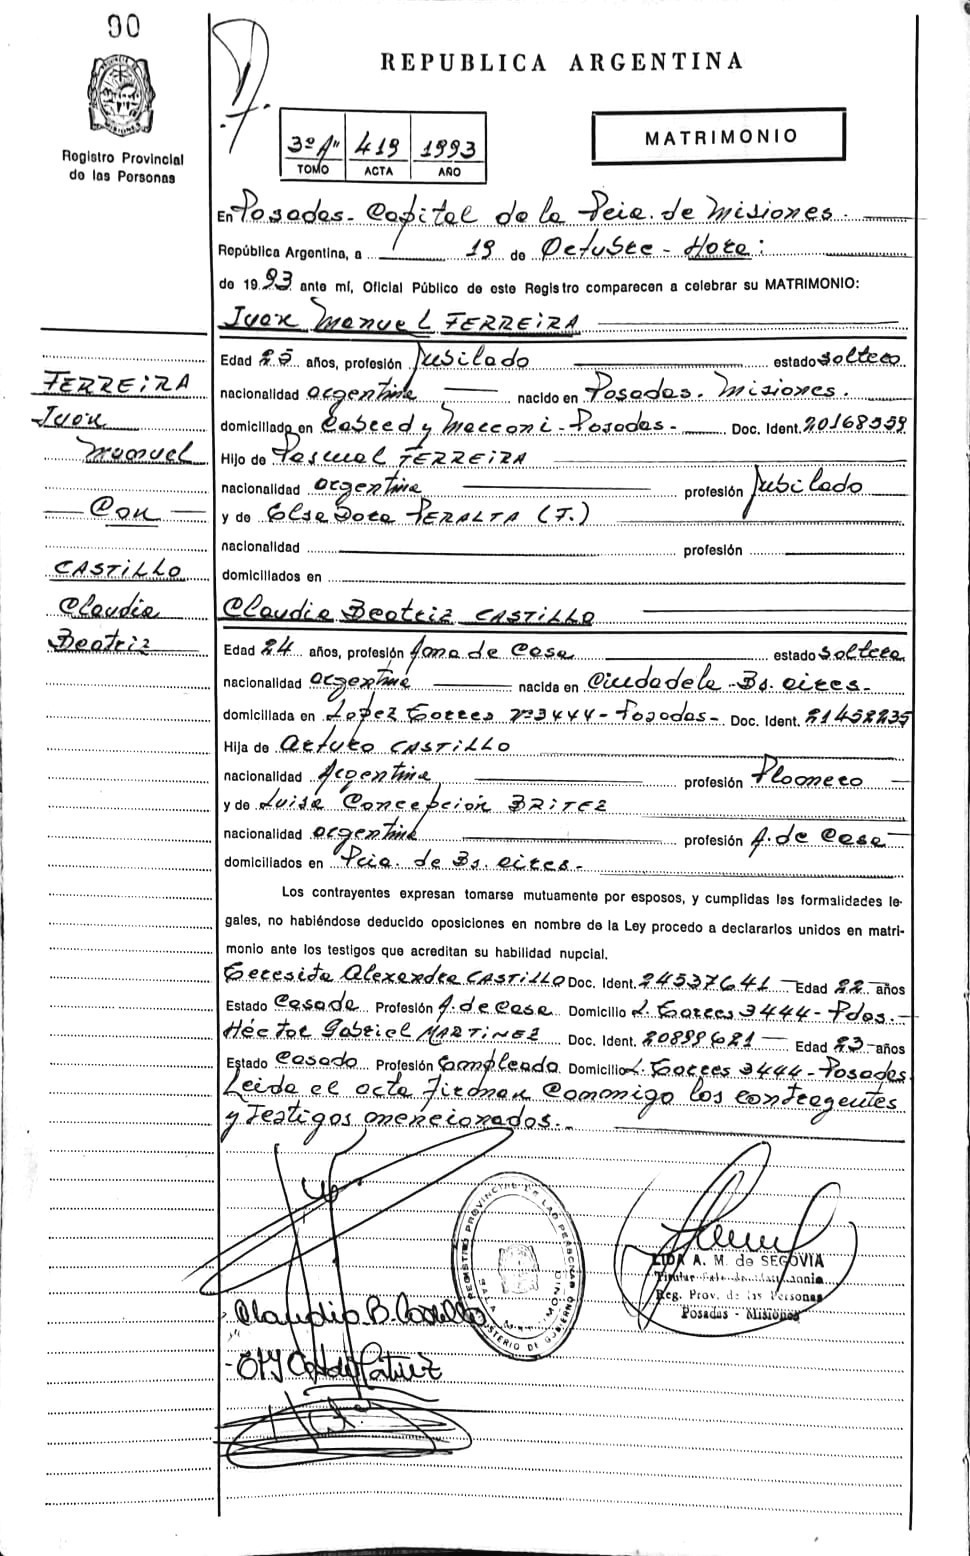 00
REPUBLICA ARGENTINA
Registro Provincial
de las Personas
3º "A" 419 1993
TOMO ACTA AÑO
MATRIMONIO
En Posadas - Capital de la Pcia. de Misiones.
República Argentina, a 19 de Octubre - Hora:
de 1993 ante mí, Oficial Público de este Registro comparecen a celebrar su MATRIMONIO:
Juan Manuel FERREIRA
FERREIRA
Juan
Manuel
Con
CASTILLO
Claudia
Beatriz
Edad 25 años, profesión Jubilado estado soltero
nacionalidad argentina nacido en Posadas. Misiones.
domiciliado en y Posadas - Doc. Ident. 20168559
Hijo de Pascual FERREIRA
nacionalidad argentina profesión Jubilado
y de Elsa Dora PERALTA (F.)
nacionalidad profesión
domiciliados en
Claudia Beatriz CASTILLO
Edad 24 años, profesión Ama de Casa estado soltera
nacionalidad argentina nacida en Ciudadela - Bs. aires -
domiciliada en Lopez Torres nº 3444 - Posadas - Doc. Ident. 21452235
Hija de Arturo CASTILLO
nacionalidad Argentina profesión Plomero
y de Luisa Concepción BRITEZ
nacionalidad argentina profesión A. de Casa
domiciliados en Pcia. de Bs. aires -
Los contrayentes expresan tomarse mutuamente por esposos, y cumplidas las formalidades le-
gales, no habiéndose deducido oposiciones en nombre de la Ley procedo a declararlos unidos en matri-
monio ante los testigos que acreditan su habilidad nupcial.
Teresita Alexandra CASTILLO Doc. Ident. 24537641 Edad 22 años
Estado Casada Profesión A. de Casa Domicilio L. Torres 3444 - Pdas. -
Héctor Gabriel MARTINEZ Doc. Ident. 20899621 Edad 23 años
Estado Casado Profesión Empleado Domicilio L. Torres 3444 - Posadas
Leida el acta firman conmigo los contrayentes
y Testigos mencionados. -
REGISTRO PROVINCIAL DE LAS PERSONAS
MINISTERIO DE GOBIERNO
SALA MATRIMONIO
LIDA A. M. de SEGOVIA
Titular
Reg. Prov. de las Personas
Posadas - Misiones
Claudia B. Castillo